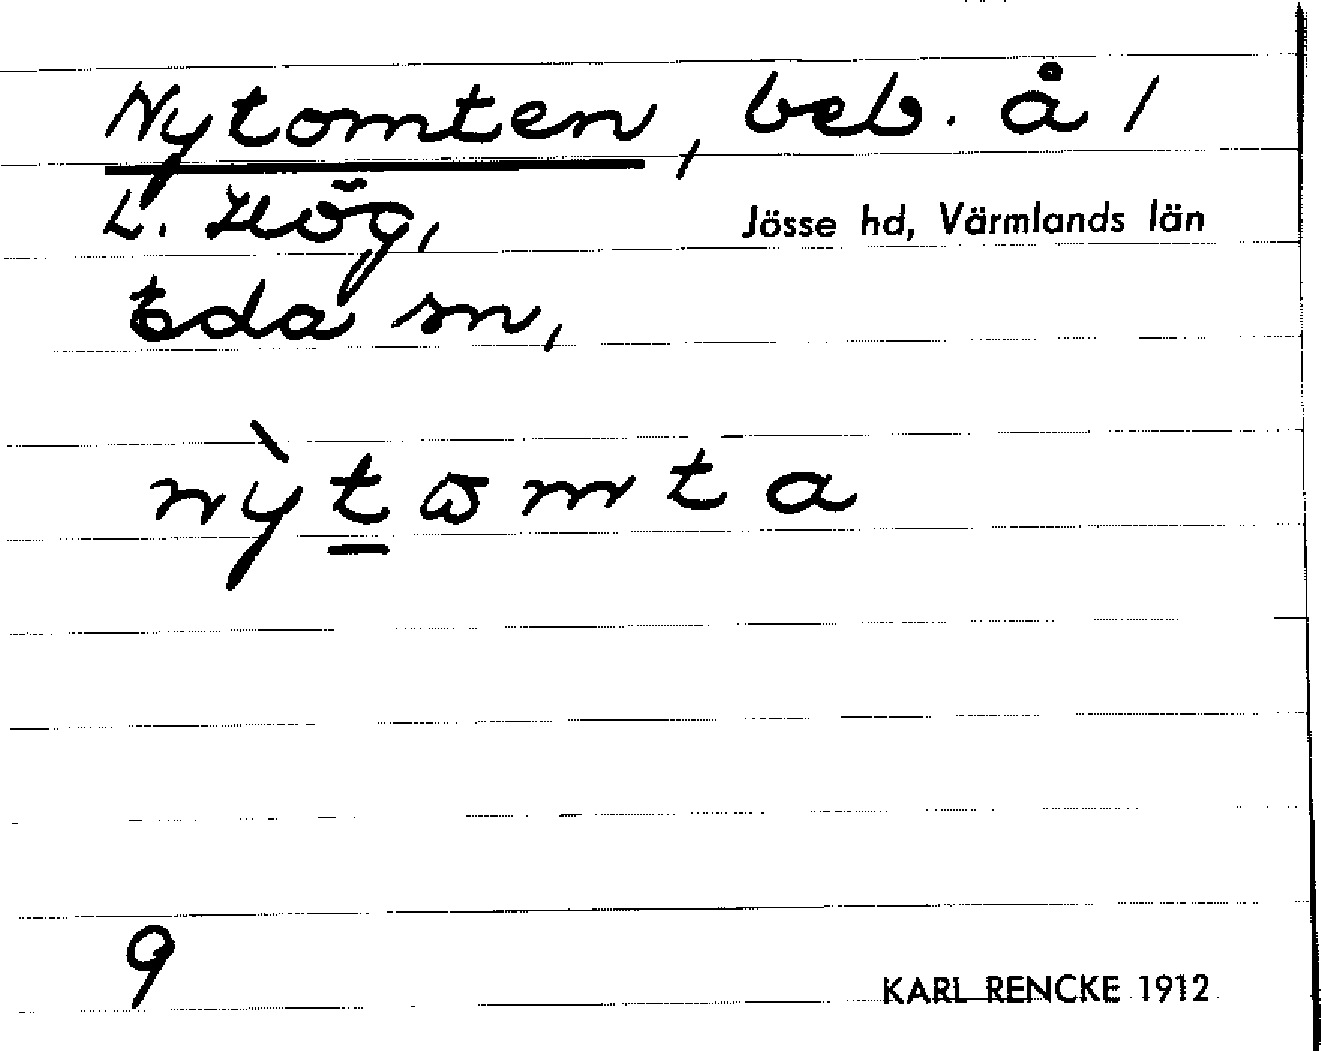 Nytomten, beb. å /
L. Hög,
Jösse hd, Värmlands län
Eda sn,
nỳtɷmta
9
KARL RENCKE 1912